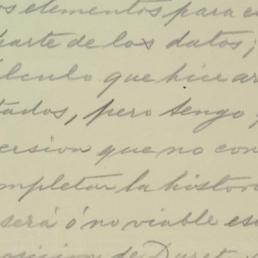 os elementos para c
parte de los datos;
lculo que hice ar
tados, pero tengo
ersion que no con
mpletar la histori
será ó no viable es
osicion de Duret